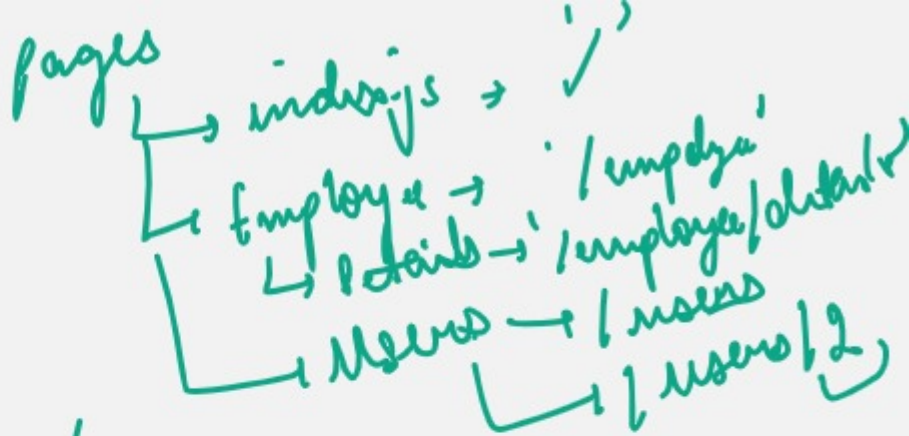 pages
index.js → '/'
Employee → '/employee'
Details → '/employee/details'
Users → /users
/users/2